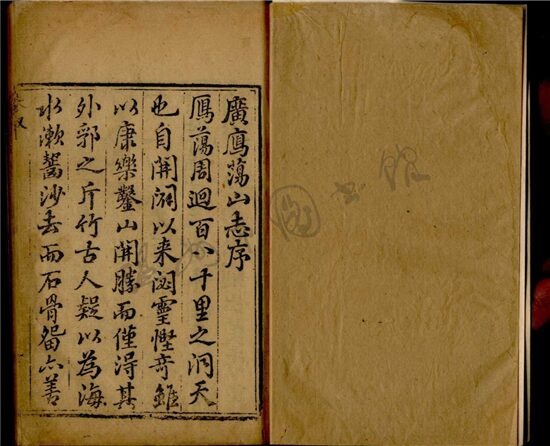 廣鴈蕩山志序
鴈蕩周迴百八十里之洞天
也自開闢以來閟靈慳奇雖
以康樂鑿山開勝而僅得其
外郭之斤竹古人疑以為海
水漱齧沙去而石骨留亦善